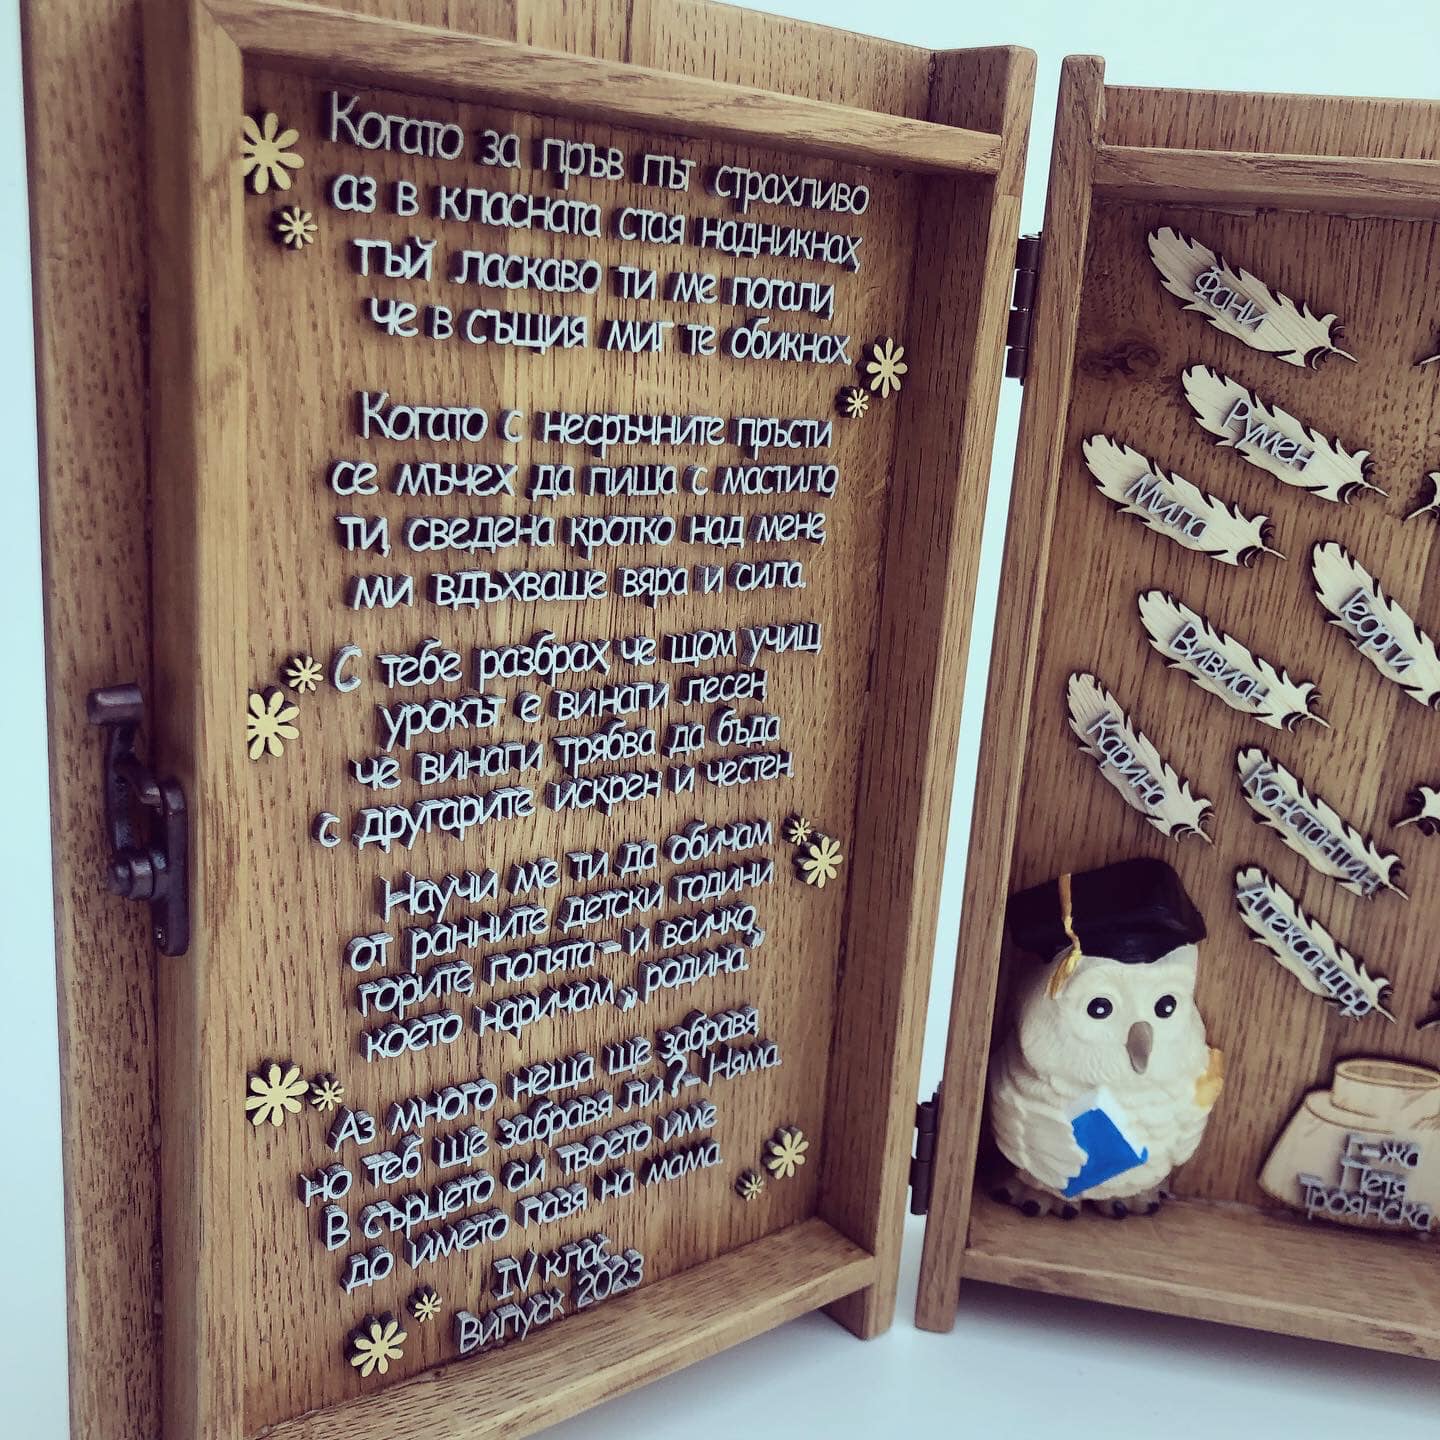 Когато за пръв път страхливо
аз в класната стая надникнах,
тъй ласкаво ти ме погали,
че в същия миг те обикнах.
Когато с несръчните пръсти
се мъчех да пиша с мастило,
ти, сведена кротко над мене,
ми вдъхваше вяра и сила.
С тебе разбрах, че щом учиш,
урокът е винаги лесен,
че винаги трябва да бъда
с другарите искрен и честен.
Научи ме ти да обичам
от ранните детски години
горите, полята – и всичко,
което наричам „родина."
Аз много неща ще забравя,
но теб ще забравя ли? – Няма.
В сърцето си твоето име
до името пазя на мама.
IV клас
Випуск 2023
Фани
Румен
Мила
Георги
Вивиан
Карина
Константин
Александър
Г-жа
Петя
Троянска